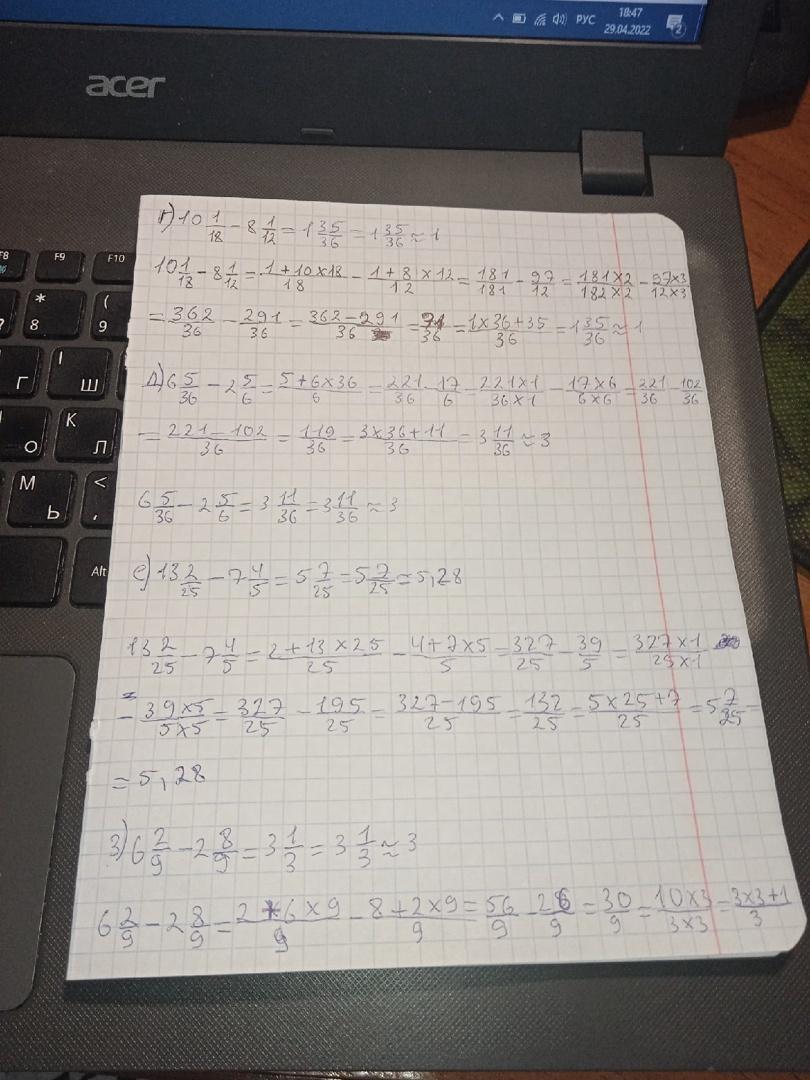 18:47
РУС
29.04.2022
2
acer
F8
F9
F10
*
8
(
9
Г
Ш
О
К
Л
М
Ь
<
,
Alt
г) 10 1/18 - 8 1/12 = 1 35/36 = 1 35/36 ≈ 1
10 1/18 - 8 1/12 = (1 + 10 × 18)/18 - (1 + 8 × 12)/12 = 181/181 - 97/12 = (181 × 2)/(182 × 2) - (97 × 3)/(12 × 3)
= 362/36 - 291/36 = (362 - 291)/36 = 71/36 = (1 × 36 + 35)/36 = 1 35/36 ≈ 1
Д) 6 5/36 - 2 5/6 = (5 + 6 × 36)/6 = 221/36 - 17/6 = (221 × 1)/(36 × 1) - (17 × 6)/(6 × 6) = 221/36 - 102/36
= (221 - 102)/36 = 119/36 = (3 × 36 + 11)/36 = 3 11/36 ≈ 3
6 5/36 - 2 5/6 = 3 11/36 = 3 11/36 ≈ 3
е) 13 2/25 - 7 4/5 = 5 7/25 = 5 7/25 = 5,28
13 2/25 - 7 4/5 = (2 + 13 × 25)/25 - (4 + 7 × 5)/5 = 327/25 - 39/5 = (327 × 1)/(25 × 1)
- (39 × 5)/(5 × 5) = 327/25 - 195/25 = (327 - 195)/25 = 132/25 = (5 × 25 + 7)/25 = 5 7/25 =
= 5,28
З) 6 2/9 - 2 8/9 = 3 1/3 = 3 1/3 ≈ 3
6 2/9 - 2 8/9 = (2 + 6 × 9)/9 - (8 + 2 × 9)/9 = 56/9 - 26/9 = 30/9 = (10 × 3)/(3 × 3) = (3 × 3 + 1)/3